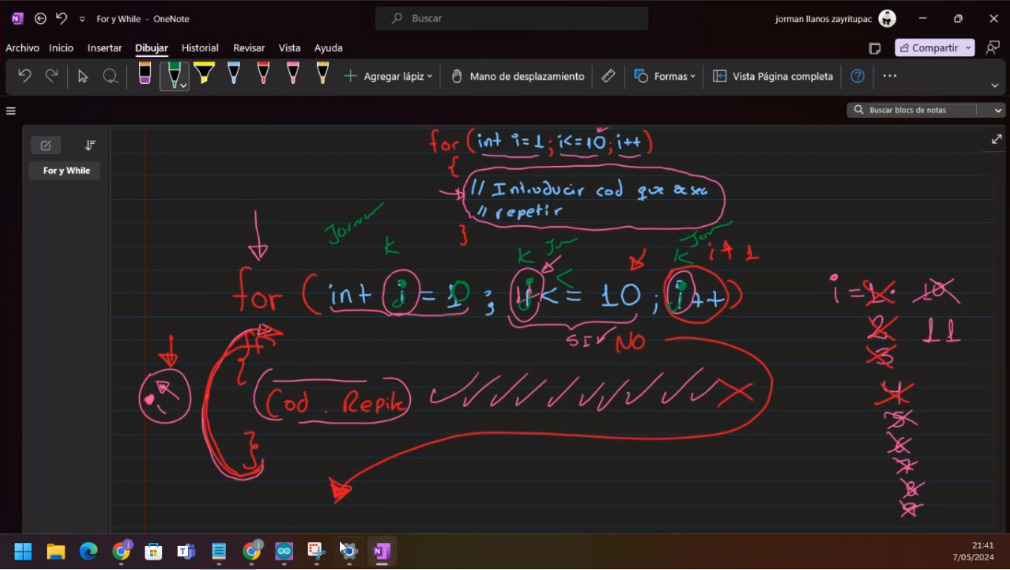 For y While - OneNote
Buscar
jorman llanos zayritupac
Archivo Inicio Insertar Dibujar Historial Revisar Vista Ayuda
Compartir
Agregar lápiz
Mano de desplazamiento
Formas
Vista Página completa
Buscar blocs de notas
For y While
for (int i=1; i<=10; i++)
{
// Introducir cod que
// repetir
}
Jorman
K
K
K
i + 1
for (int i = 10; <= 10; i++)
SI NO
{
Cod. Repite
}
i = 1 10
2 11
3
4
5
6
7
8
9
21:41
7/05/2024